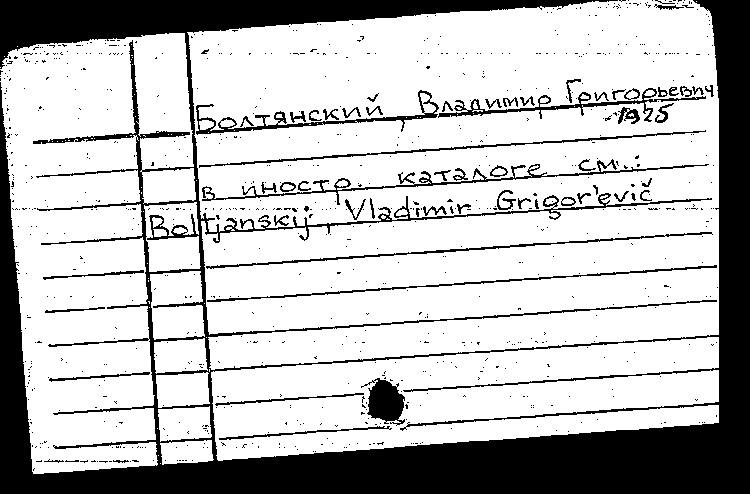 Болтянский, Владимир Григорьевич
1925
в иностр. каталоге см.:
Boltjanskij, Vladimir Grigor'evič